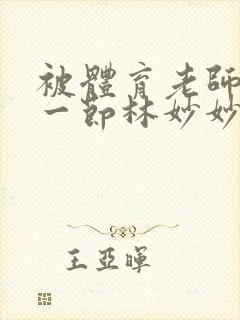 被體育老師
一節林妙妙
王亞暉